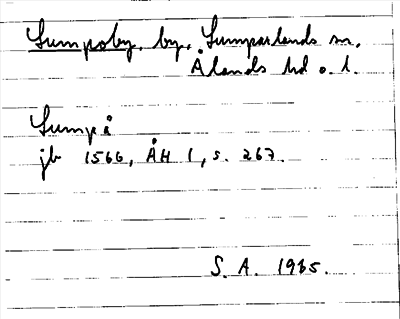 Lumpoby, by, Lumparlands sn,
Ålands hd o. l.
Lumpå
jb 1566, ÅH 1, s. 267.
S. A. 1965.